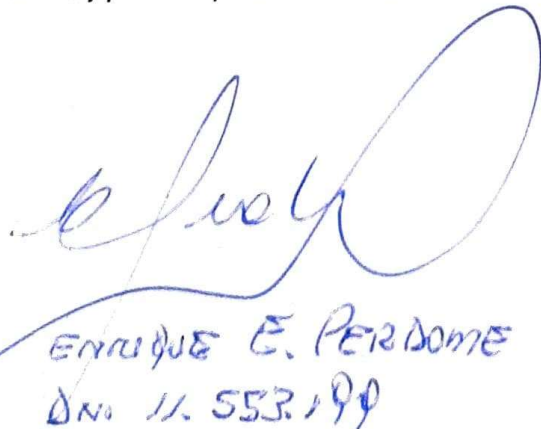 ENRIQUE E. PERDOME
DNI 11.553.199